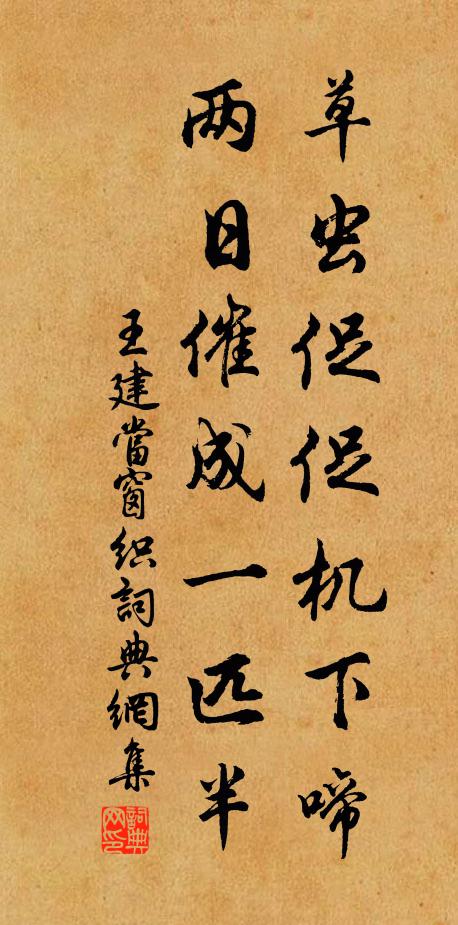 草虫促促机下啼
两日催成一匹半
王建當窗织詞典網集
詞典网印